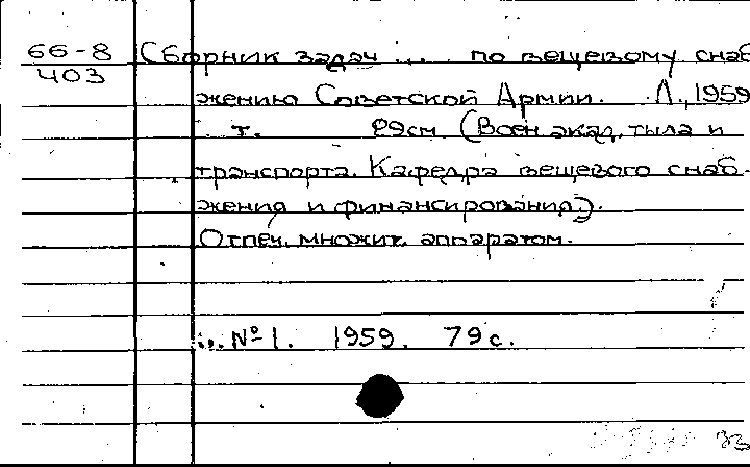 66-8 Сборник задач ... по вещевому снаб
403
жению Советской Армии. Л., 1959
т. 29см. (Воен. акад. тыла и
транспорта. Кафедра вещевого снаб-
жения и финансирования).
Отпеч. множит. аппаратом.
... №1. 1959. 79с.